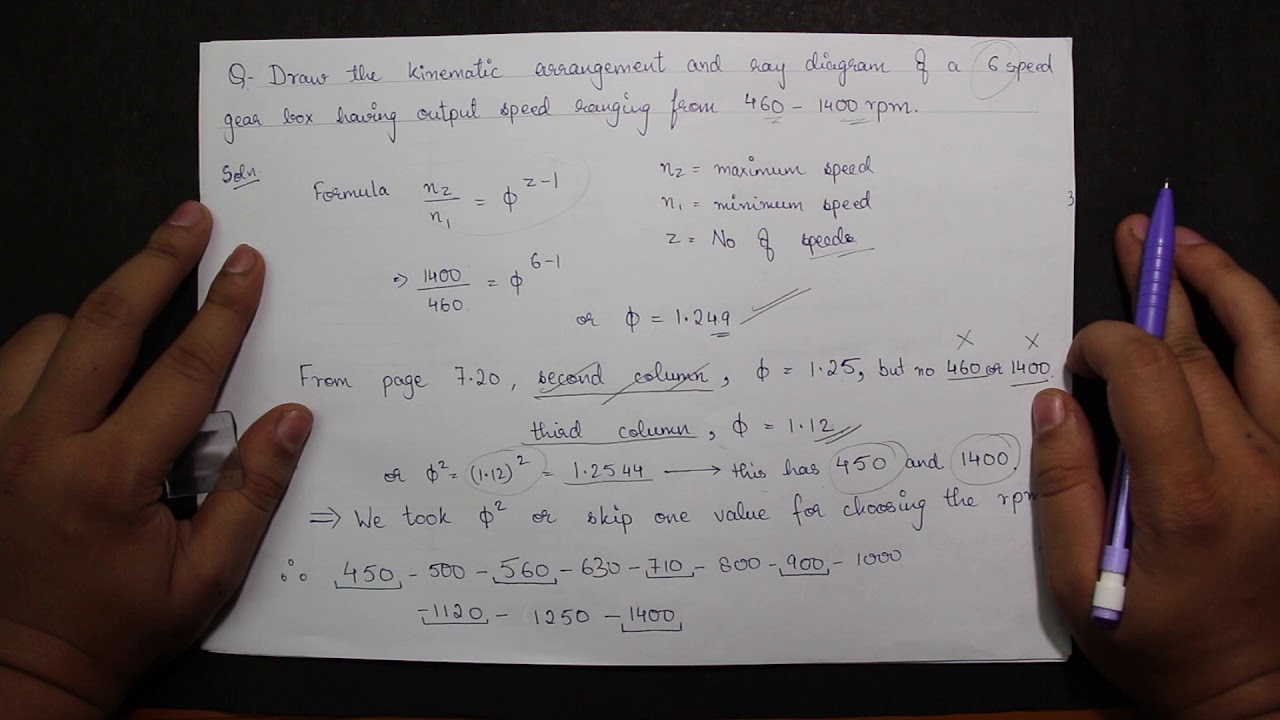 Q- Draw the kinematic arrangement and ray diagram of a 6 speed
gear box having output speed ranging from 460 - 1400 rpm.
Soln.
Formula n₂/n₁ = ϕ^(z-1)
n₂ = maximum speed
n₁ = minimum speed
z = No of speeds
3
=> 1400/460 = ϕ^(6-1)
or ϕ = 1.249
X X
From page 7.20, second column, ϕ = 1.25, but no 460 or 1400.
third column, ϕ = 1.12
or ϕ² = (1.12)² = 1.2544 → this has 450 and 1400.
⇒ We took ϕ² or skip one value for choosing the rpm
∴ 450 - 500 - 560 - 630 - 710 - 800 - 900 - 1000
- 1120 - 1250 - 1400